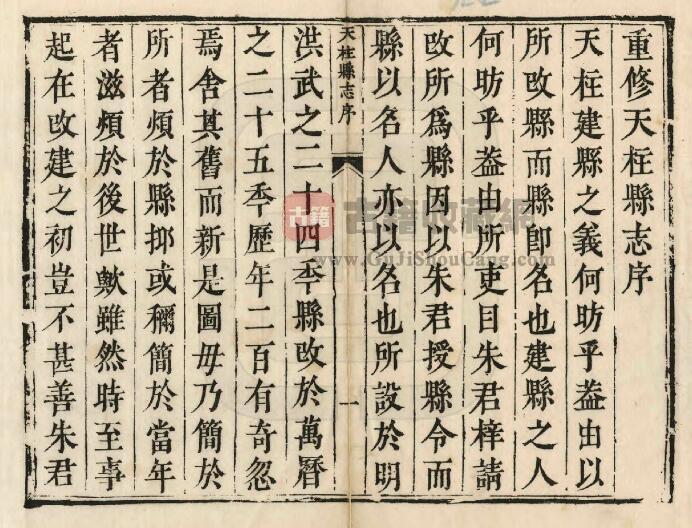 重修天柱縣志序
天柱建縣之義何昉乎葢由以
所改縣而縣卽名也建縣之人
何昉乎葢由所吏目朱君梓請
改所爲縣因以朱君授縣令而
縣以名人亦以名也所設於明
天柱縣志序
一
洪武之二十四秊縣改於萬曆
之二十五秊歷年二百有奇忽
焉舍其舊而新是圖毋乃簡於
所者煩於縣抑或稱簡於當年
者滋煩於後世歟雖然時至事
起在改建之初豈不甚善朱君
古籍
古籍收藏網
www.GuJiShouCang.com